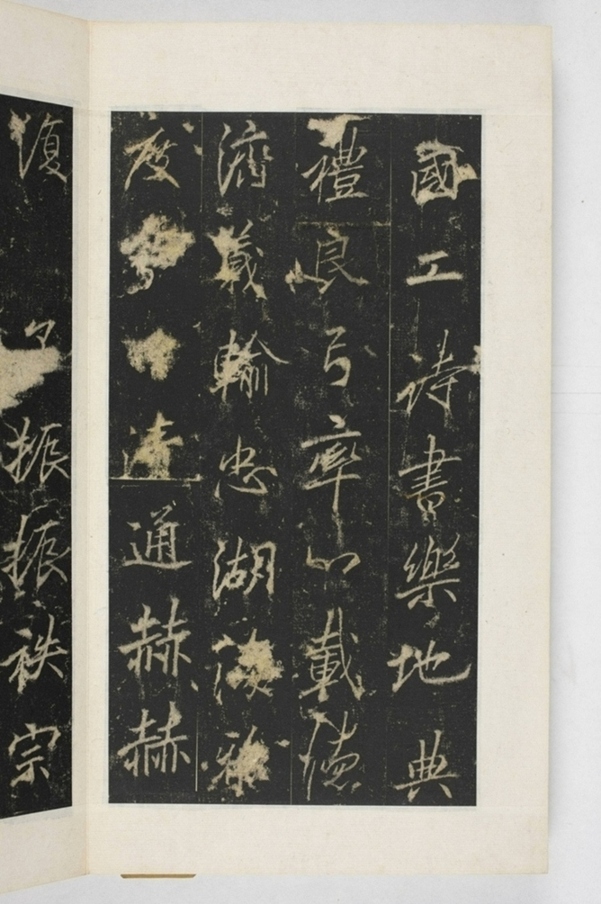 國工詩書樂地典
禮良弓率心載德
濟義輸忠湖海神
度清通赫赫
復振振秩宗